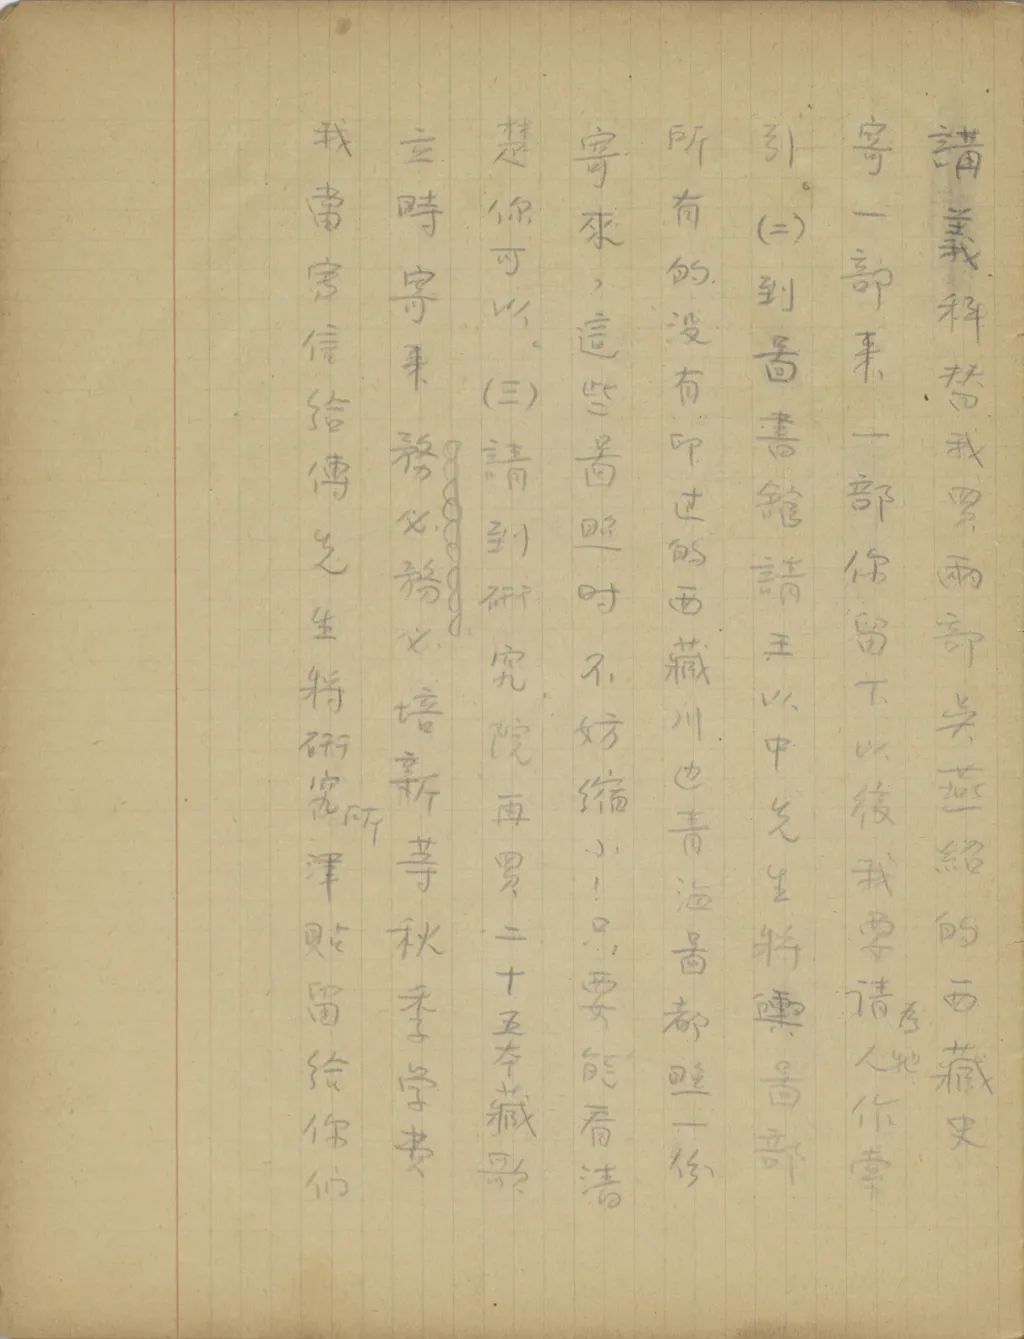 講義科替我買兩部吳燕紹的西藏史
寄一部来一部你留下以後我要请人為牠作索
引。(二)到圖書館請王以中先生將輿圖部
所有的没有印过的西藏川边青海圖都照一份
寄來，這些圖照时不妨缩小！只要能看清
楚你可以。(三)請到研究院再買二十五本藏歌
立時寄来務必務必培新等秋季学费
我當寫信給傅先生將研究所津貼留給你们